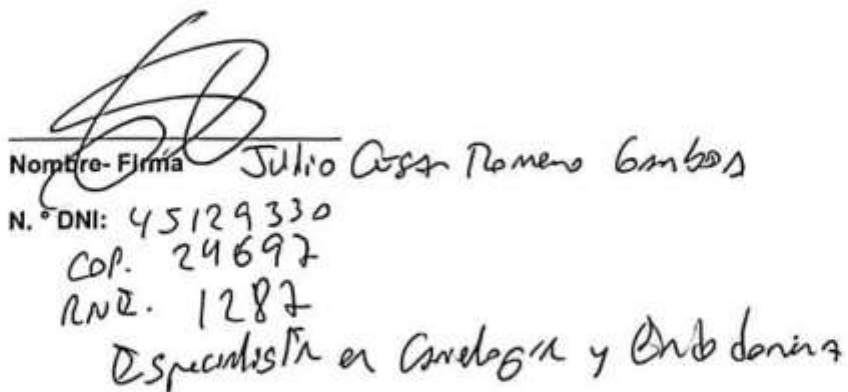 Nombre- Firma Julio Cesar Romero Gamboa
N.° DNI: 45129330
COP. 24697
RNE. 1287
Especialista en Cariologia y Endodoncia